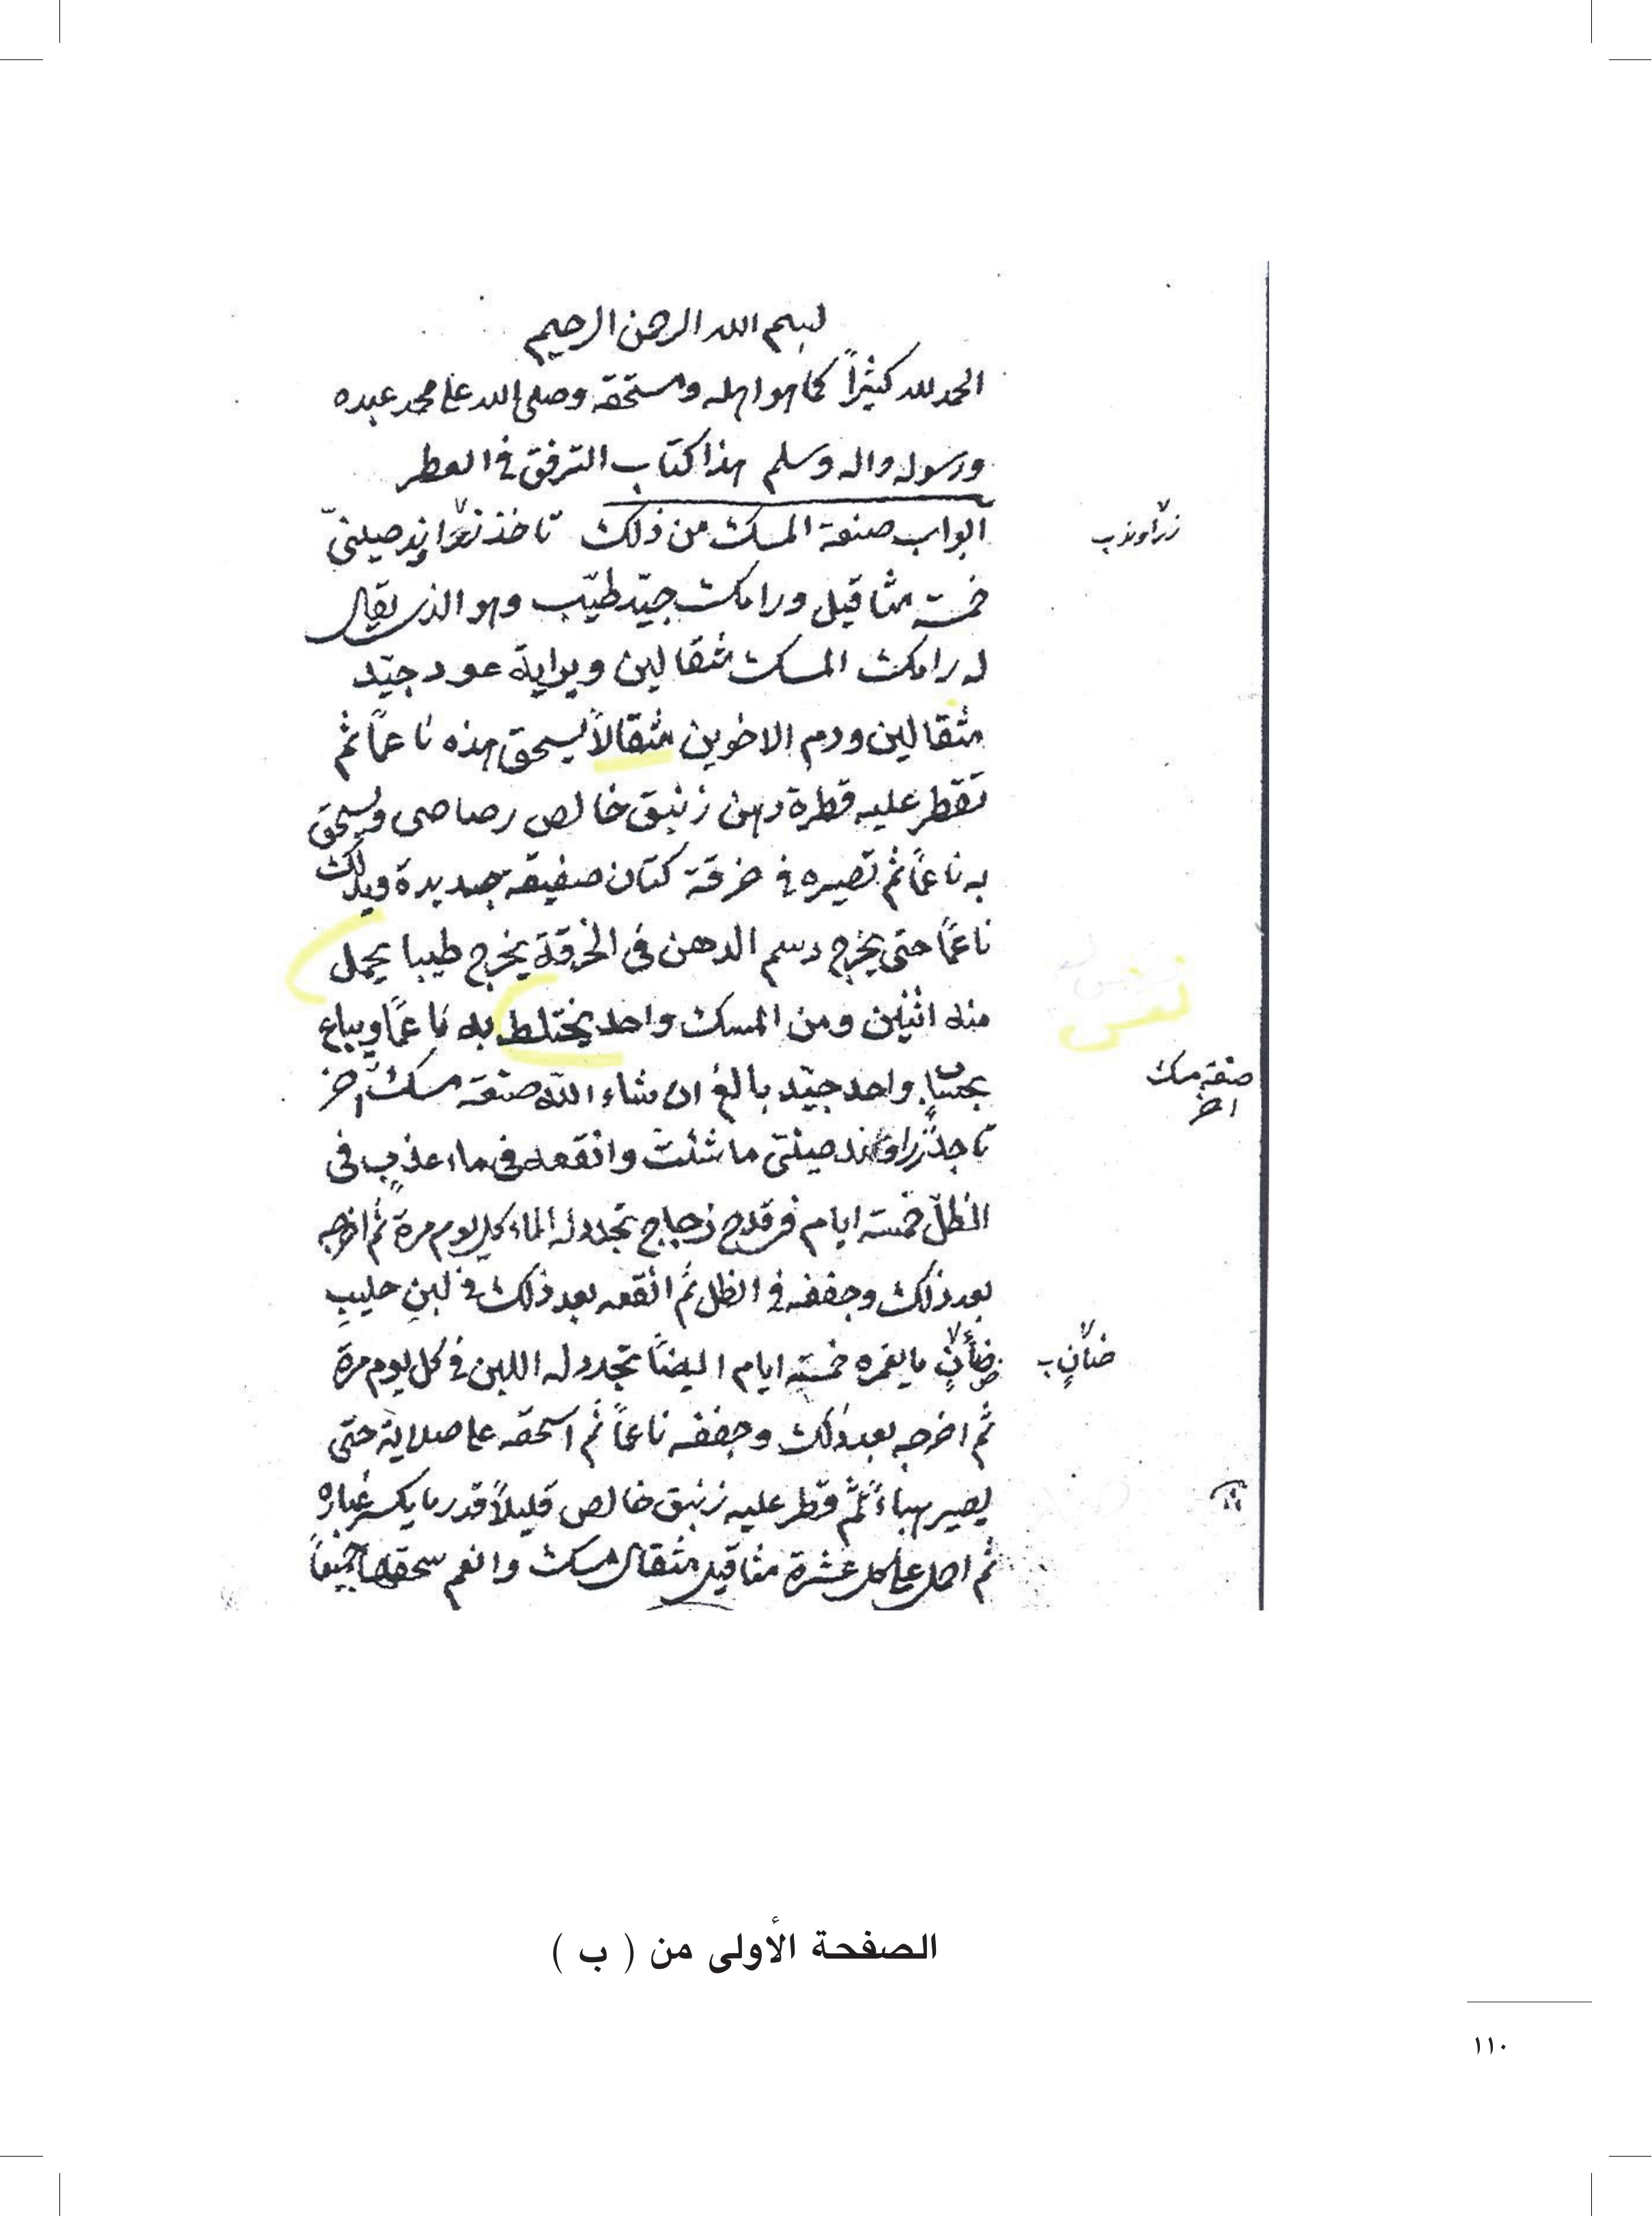 بسم الله الرحمن الرحيم
الحمد لله كثيراً كما هو اهله ومستحقه وصلى الله على محمد عبده
ورسوله واله وسلم هذا كتاب الترفق في العطر
ابواب صنعة المسك من ذلك تاخذ صينيّ
زراوند ب
خمسة مثاقيل ورامك جيّد طيّب وهو الذي يقال
له رامك المسك مثقالين وبراية عود جيّد
مثقالين ودم الاخوين مثقالاً يسحق هذه ناعماً ثم
تقطر عليه قطرة دهن زنبق خالص رصاصي ويسحق
به ناعماً ثم تصيره في خرقة كتان صفيقة جديدة ويدلك
ناعمًا حتى يخرج دسم الدهن فى الخرقة يخرج طيبا يحمل
منه اثنين ومن المسك واحد يختلط به ناعمًا ويباع
واحد جيّد بالغ ان شاء اللّه صنعة مسك اخر
صنعة مسك
اخر
زراوند صينى ما شئت وانقعه فى ماء عذب فى
الظلّ خمسة ايام في قدح زجاج تجدد له الماء كل يوم مرة ثم اخرجه
بعد ذلك وجففه في الظل ثم انقعه بعد ذلك في لبنٍ حليبٍ
ضأنٍ ما يغمره خمسة ايام ايضاً تجدد له اللبن في كل يوم مرة
ضأنٍ ب
ثم اخرجه بعد ذلك وجففه ناعماً ثم اسحقه على صلاية حتى
يصير هباءً ثم قطر عليه زنبق خالص قليلاً قدر ما يكسر غباره
ثم احمل على كل عشرة مثاقيل مثقال مسك وانعم سحقها جميعاً
الصفحة الأولى من ( ب )
١١٠